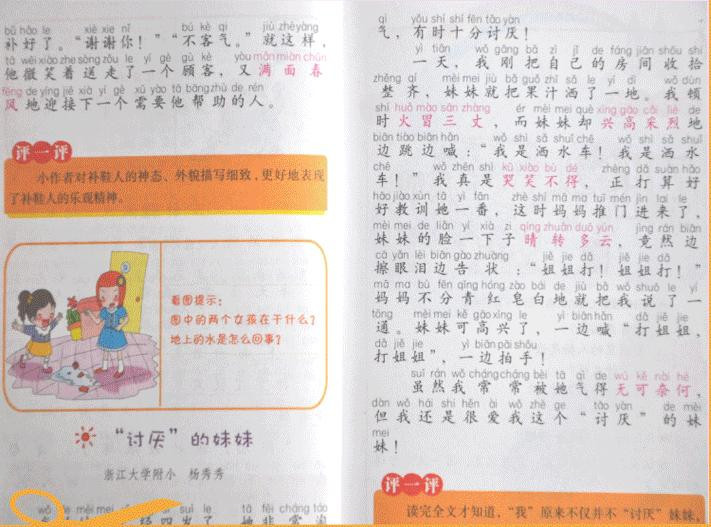 bǔ hǎo le xiè xie nǐ bú kè qi jiù zhè yàng
补好了。“谢谢你！”“不客气。”就这样，
tā wēi xiào zhe sòng zǒu le yí gè gù kè yòu mǎn miàn chūn
他微笑着送走了一个顾客，又满面春
fēng de yíng jiē xià yí gè xū yào tā bāng zhù de rén
风地迎接下一个需要他帮助的人。
评一评
小作者对补鞋人的神态、外貌描写细致，更好地表现
了补鞋人的乐观精神。
看图提示：
图中的两个女孩在干什么？
地上的水是怎么回事？
“讨厌”的妹妹
浙江大学附小 杨秀秀
qì yǒu shí shí fēn tǎo yàn
气，有时十分讨厌！
yì tiān wǒ gāng bǎ zì jǐ de fáng jiān shōu shi
一天，我刚把自己的房间收拾
zhěng qí mèi mei jiù bǎ guǒ zhī sǎ le yí dì wǒ dùn
整齐，妹妹就把果汁洒了一地。我顿
shí huǒ mào sān zhàng ér mèi mei què xìng gāo cǎi liè de
时火冒三丈，而妹妹却兴高采烈地
biān tiào biān hǎn wǒ shì sǎ shuǐ chē wǒ shì sǎ shuǐ
边跳边喊：“我是洒水车！我是洒水
chē wǒ zhēn shì kū xiào bù dé zhèng dǎ suàn hǎo
车！”我真是哭笑不得，正打算好
hǎo jiào xùn tā yì fān zhè shí mā ma tuī mén jìn lai le
好教训她一番，这时妈妈推门进来了，
mèi mei de liǎn yí xià zi qíng zhuǎn duō yún jìng rán biān
妹妹的脸一下子晴转多云，竟然边
cā yǎn lèi biān gào zhuàng jiě jie dǎ jiě jie dǎ
擦眼泪边告状：“姐姐打！姐姐打！”
mā ma bù fēn qīng hóng zào bái de jiù bǎ wǒ shuō le yí
妈妈不分青红皂白地就把我说了一
tòng mèi mei kě gāo xìng le yì biān hǎn dǎ jiě jie
通。妹妹可高兴了，一边喊“打姐姐，
dǎ jiě jie yì biān pāi shǒu
打姐姐”，一边拍手！
suī rán wǒ cháng cháng bèi tā qì de wú kě nài hé
虽然我常常被她气得无可奈何，
dàn wǒ hái shi hěn ài wǒ zhè ge tǎo yàn de mèi
但我还是很爱我这个“讨厌”的妹
mei
妹！
评一评
读完全文才知道，“我”原来不仅并不“讨厌”妹妹，